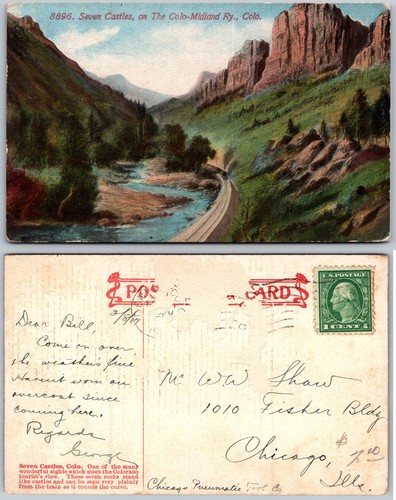 8896. Seven Castles, on The Colo-Midland Ry., Colo.
POST CARD
U.S. POSTAGE
1 CENT 1
2/5/17
Dear Bill,
Come on over,
the weather's fine
Havent worn an
overcoat since
coming here.
Regards
George
Mr WW Shaw
1010 Fisher Bldg
Chicago,
Ills.
Chicago Pneumatic Tool Co
$
Seven Castles, Colo. One of the many
wonderful sights which meet the Colorado
tourist's view. These seven rocks stand
like castles and can be seen very plainly
from the train as it rounds the curve.